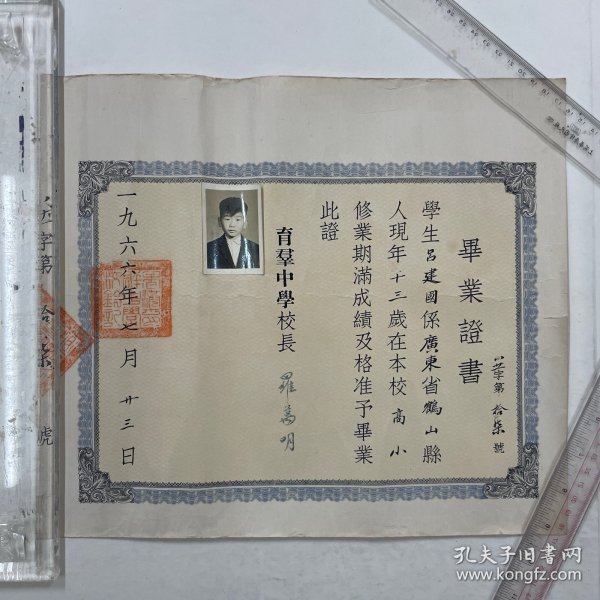 畢業證書
字第拾柒號
學生呂建國係廣東省鶴山縣
人現年十三歲在本校高小
修業期滿成績及格准予畢業
此證
育羣中學校長 羅萬明
一九六六年七月廿三日
字第拾柒號
孔夫子旧书网
www.kongfz.com